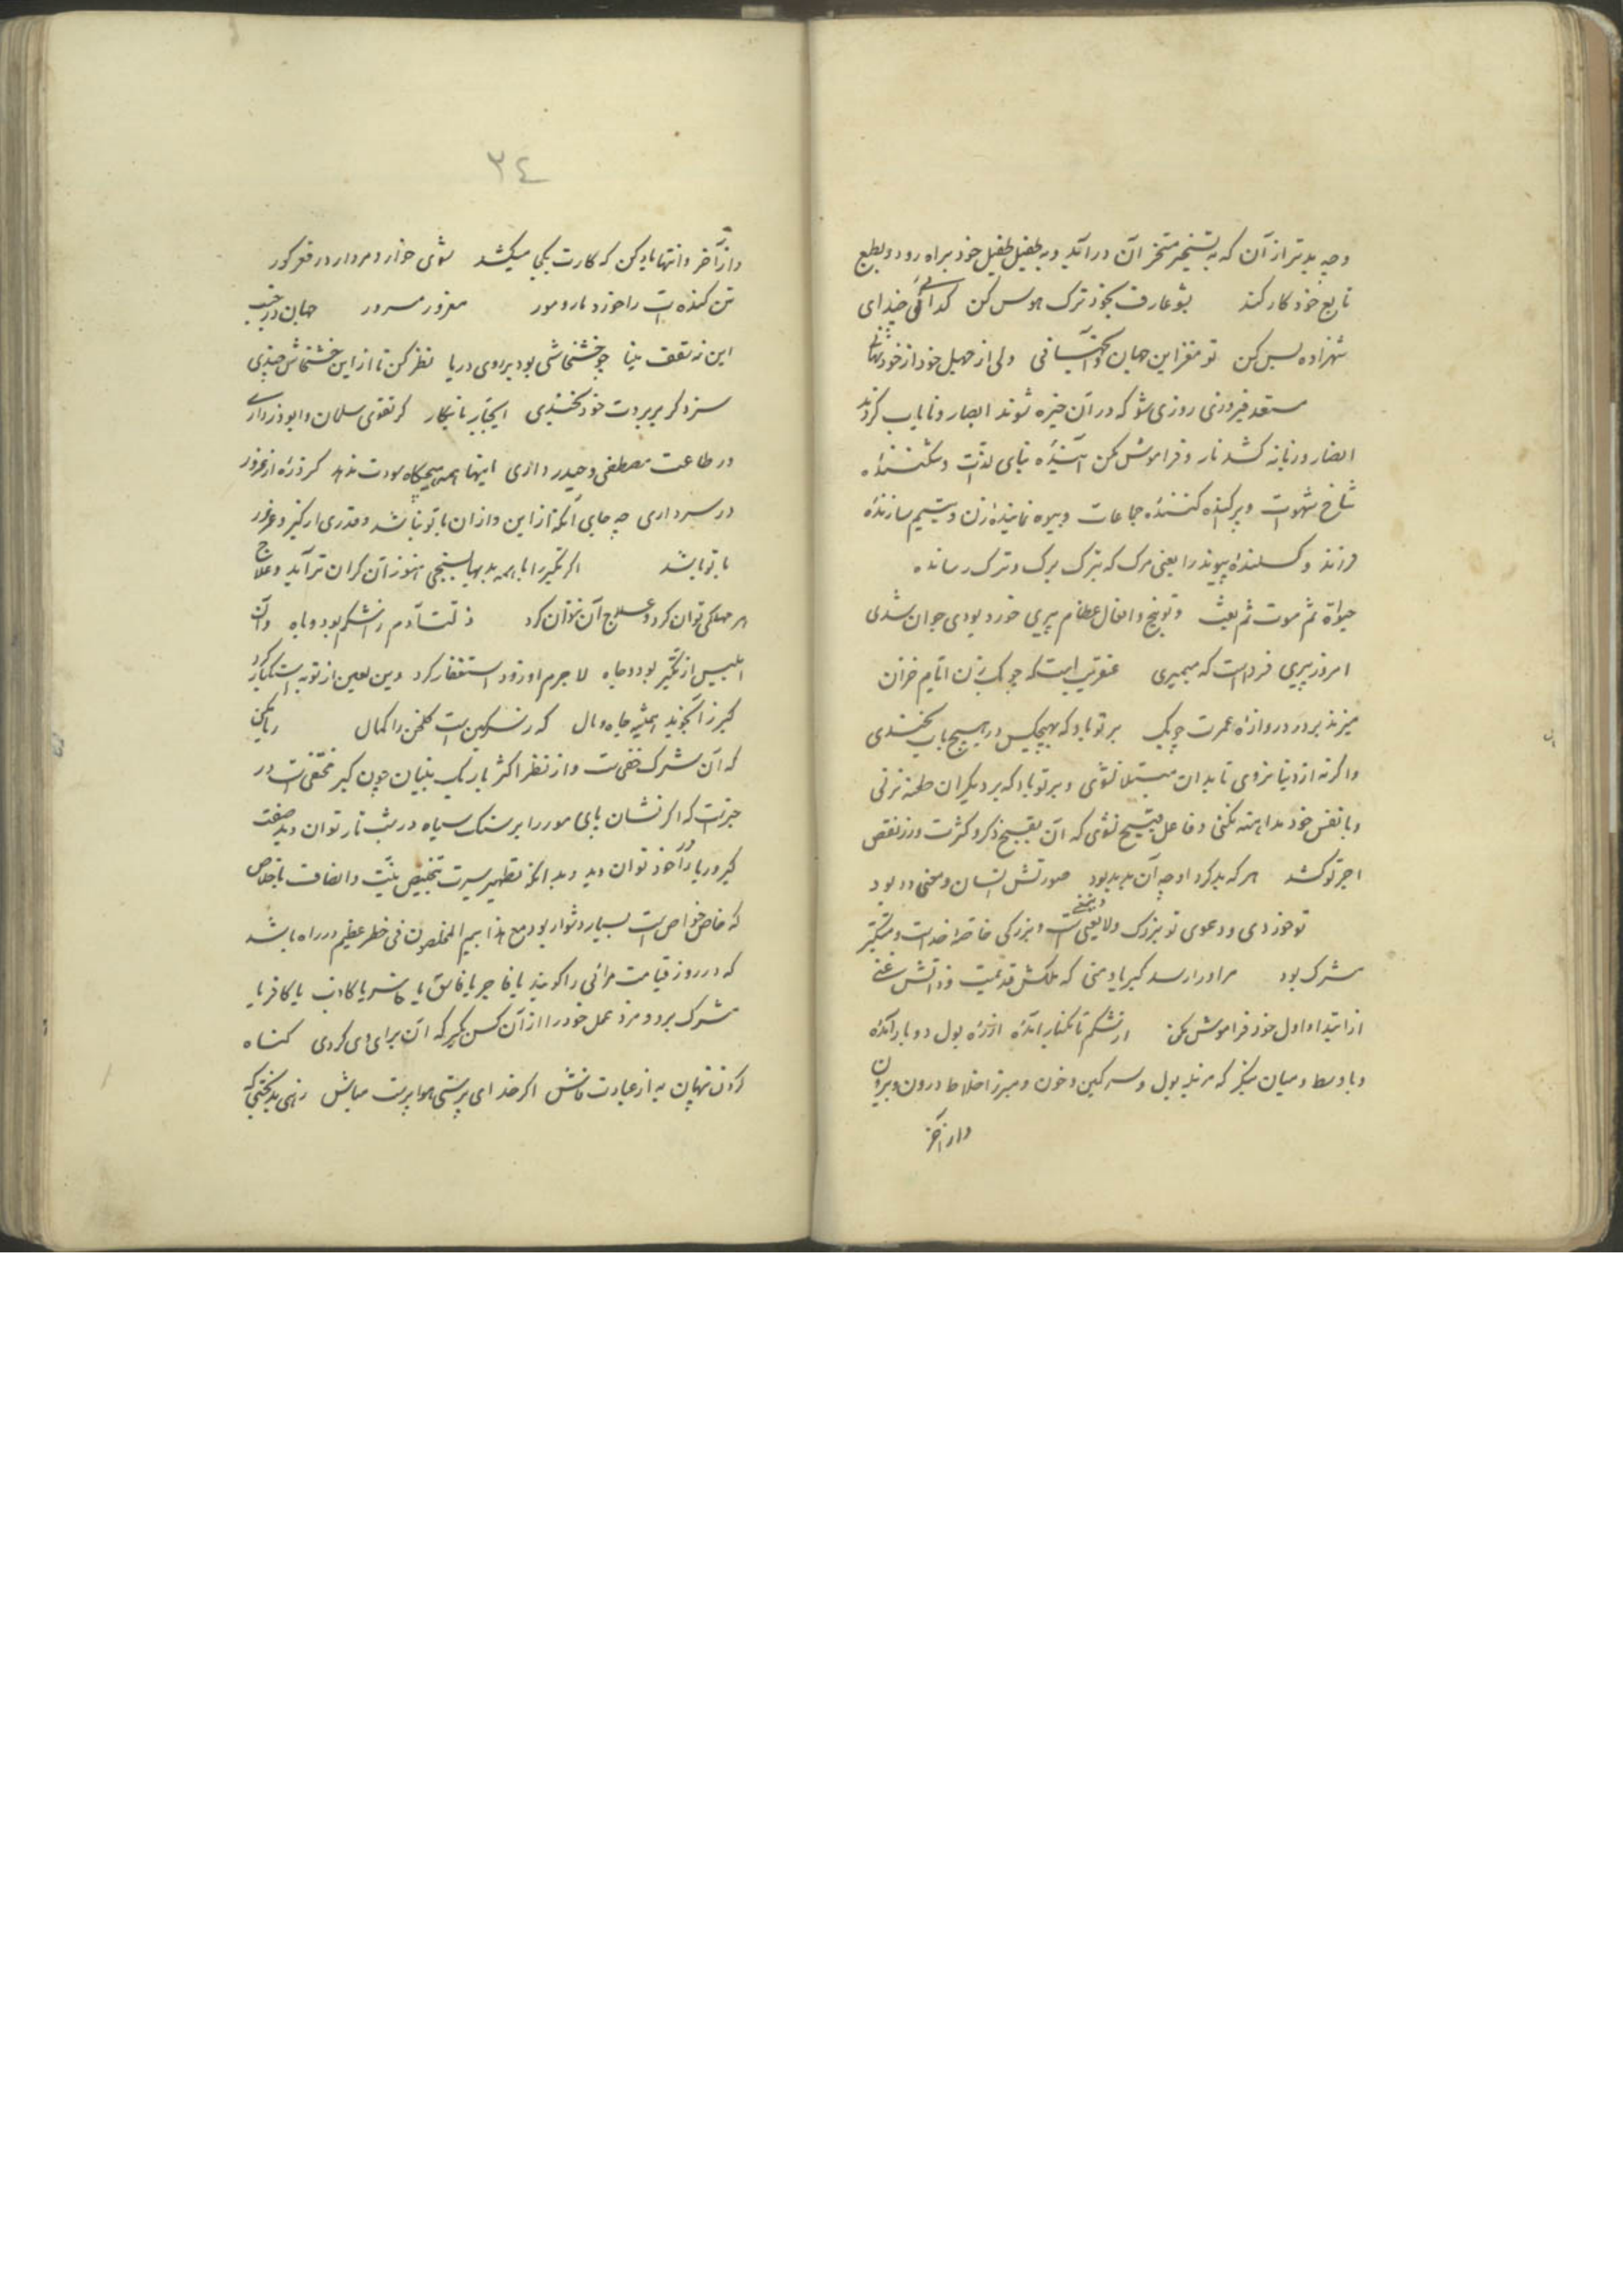 وچه بدتر از آن که به تسخیر متخر آن درآید و به طفیل طفیل خود براه رود و بطبع
تابع خود کار کند بشو عارف بخود ترک هوس کن گدائی چند ای
شهزاده بس کن تو مغز این جهان و آسمانی ولی از جهل خود از خود نهانی
مستعد فیروزی روزی شو که در آن خیره شوند ابصار و نایاب گردند
انصار و زبانه کشد نار و فراموش مکن بنای لذات و شکننده
شاخ شهوات و پراکنده کننده جماعات و بیوه نماینده زن و یتیم سازنده
فرزند و گسلنده پیوند را یعنی مرگ که بترک برگ و ترک رساند
حیوة ثم موت ثم بعث پیری خورد بودی جوان شدی
امروز پیری فرداست که میمیری عنقریب است که چوبک زن ایام خزان
میزند بر در دروازه عمرت چوبک بر تو باد که بهیچکس در هیچ باب نخندی
و اگرنه از دنیا نروی تا بدان مبتلا نشوی و بر تو باد که بر دیگران طعنه نزنی
و با نفس خود مداهنه نکنی و فاعل قبیح نشوی که آن بقبح ذکر و کثرت وزر و نقص
اجر تو کشد هر که بد کرد او چه آن بد بد بود صورتش انسان و معنی دد بود
تو خوردی و دعوی تو بزرگ و لایعنی است و بزرگی خاصه خداست و متکبر
مشرک بود مر او را رسد کبریا و منی که ملکش قدیمست و ذاتش غنی
از ابتدا و اول خود فراموش مکن از شکم تا بکنار آمدۀ از ره بول دو بار آمدۀ
و باوسط و میان بنگر که مزبله بول و سرگین و خون و مبرز اخلاط درون و بیرون
و از آخر
٣٤
و از آخر و انتها یاد کن که کارت بکجا میکشد شوی خوار و مردار در قعر گور
تن گنده‌ات را خورد مار و مور مغرور مسرور جهان در جنب
این نه سقف مینا چو خشخاشی بود بر روی دریا نظر کن تا از این خشخاش چندی
سزد گر بر بروت خود بخندی گر تقوی سلمان و ابوذر داری
در طاعت مصطفی و حیدر داری اینها همه هیچگاه سودت ندهد گر ذره از غرور
در سر داری چه جای آنکه از این و از آن با تو نباشد و قدری از کبر و غرور
با تو باشد اگر تکبر را با همه بدیها بسنجی هنوز آن گران تر آید و علاج
هر مهلکی توان کرد و علاج آن نتوان کرد ذلت آدم ز اشکم بود و باه و آن
ابلیس از تکبر بود و جاه لاجرم او زود استغفار کرد وین لعین از توبه استکبار کرد
کبر زان جوید همیشه جاه و مال که ز سرگین است گلخن را کمال ریا مکن
که آن شرک خفی است و از نظر اکثر باریک بینان چون کبر مختفی است در
خبر است که اگر نشان پای مور را بر سنگ سیاه در شب تار توان دید صفت
کبر و ریا را در خود توان دید و بدانکه تطهیر سیرت بتخلیص نیت و اتصاف باخلاص
که خاص خواص است بسیار دشوار بود مع هذا بیم المخلصون فی خطر عظیم در راه باشد
که در روز قیامت مرائی را گویند یا فاجر یا فاسق یا خاسر یا کاذب یا کافر یا
مشرک برو و مزد عمل خود را از آن کس بگیر که آن برای وی کردی گناه
کردن پنهان به از عبادت فاش اگر خدای پرستی هواپرست مباش زهی بدبختی که